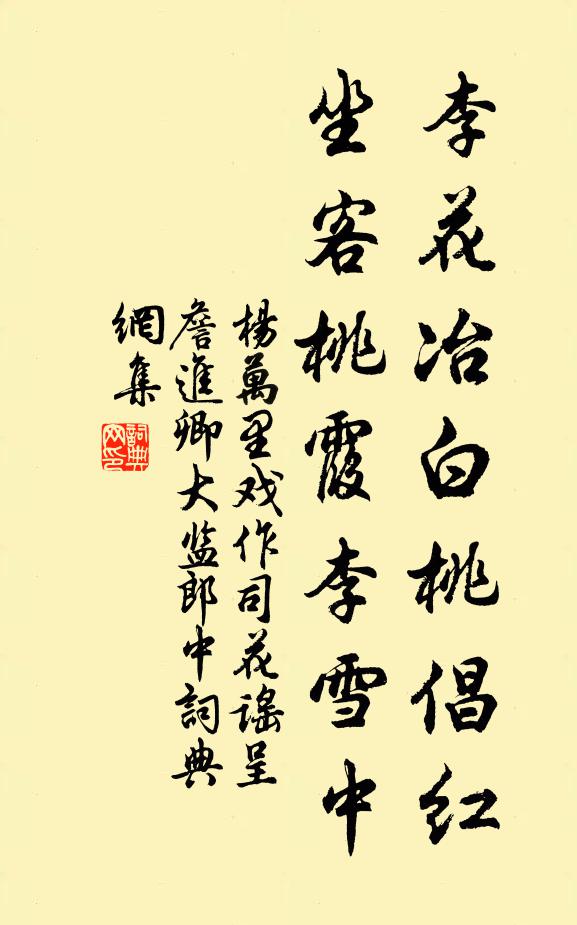 李花冶白桃倡红
坐客桃霞李雪中
楊萬里戏作司花謠呈
詹進卿大监郎中詞典
網集
詞典
网印